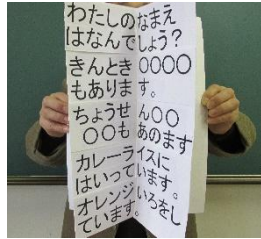 わたしのなまえ
はなんでしょう?
きんとき○○○○
もあります。
ちょうせん○○
○○もあのます
カレーライスに
はいっています。
オレンジいろをし
ています。